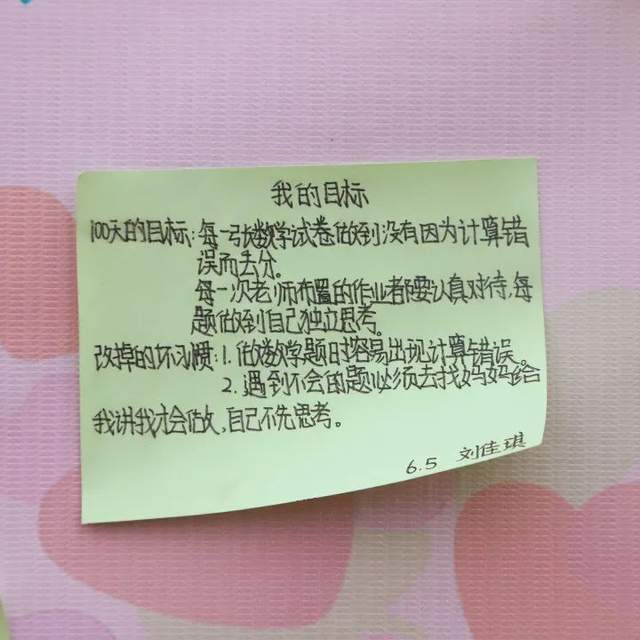 我的目标
100天的目标:每一张数学试卷做到没有因为计算错
误而去分。
每一次老师布置的作业都要认真对待,每
题做到自己独立思考。
改掉的坏习惯:1.做数学题时容易出现计算错误。
2.遇到不会的题必须去找妈妈给
我讲我才会做,自己不先思考。
6.5 刘佳琪